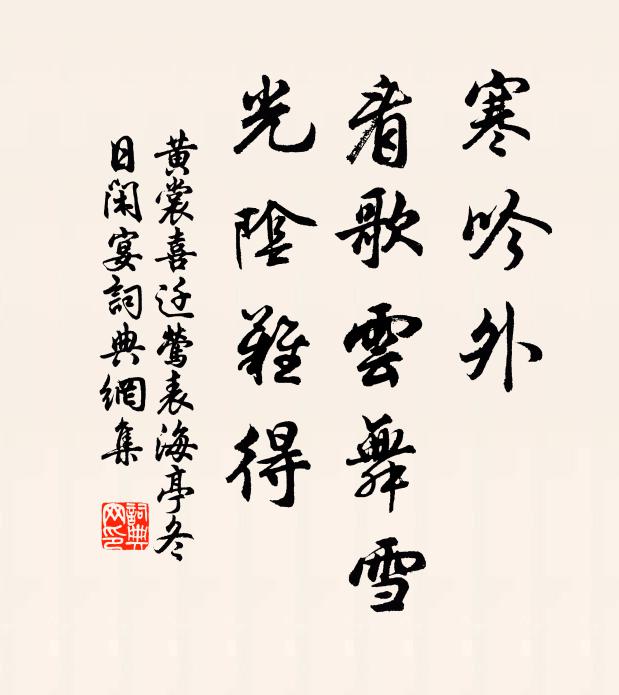 寒吟外
看歌雲舞雪
光陰難得
黄裳喜迁鶯表海亭冬
日閑宴詞典網集
詞典
网印